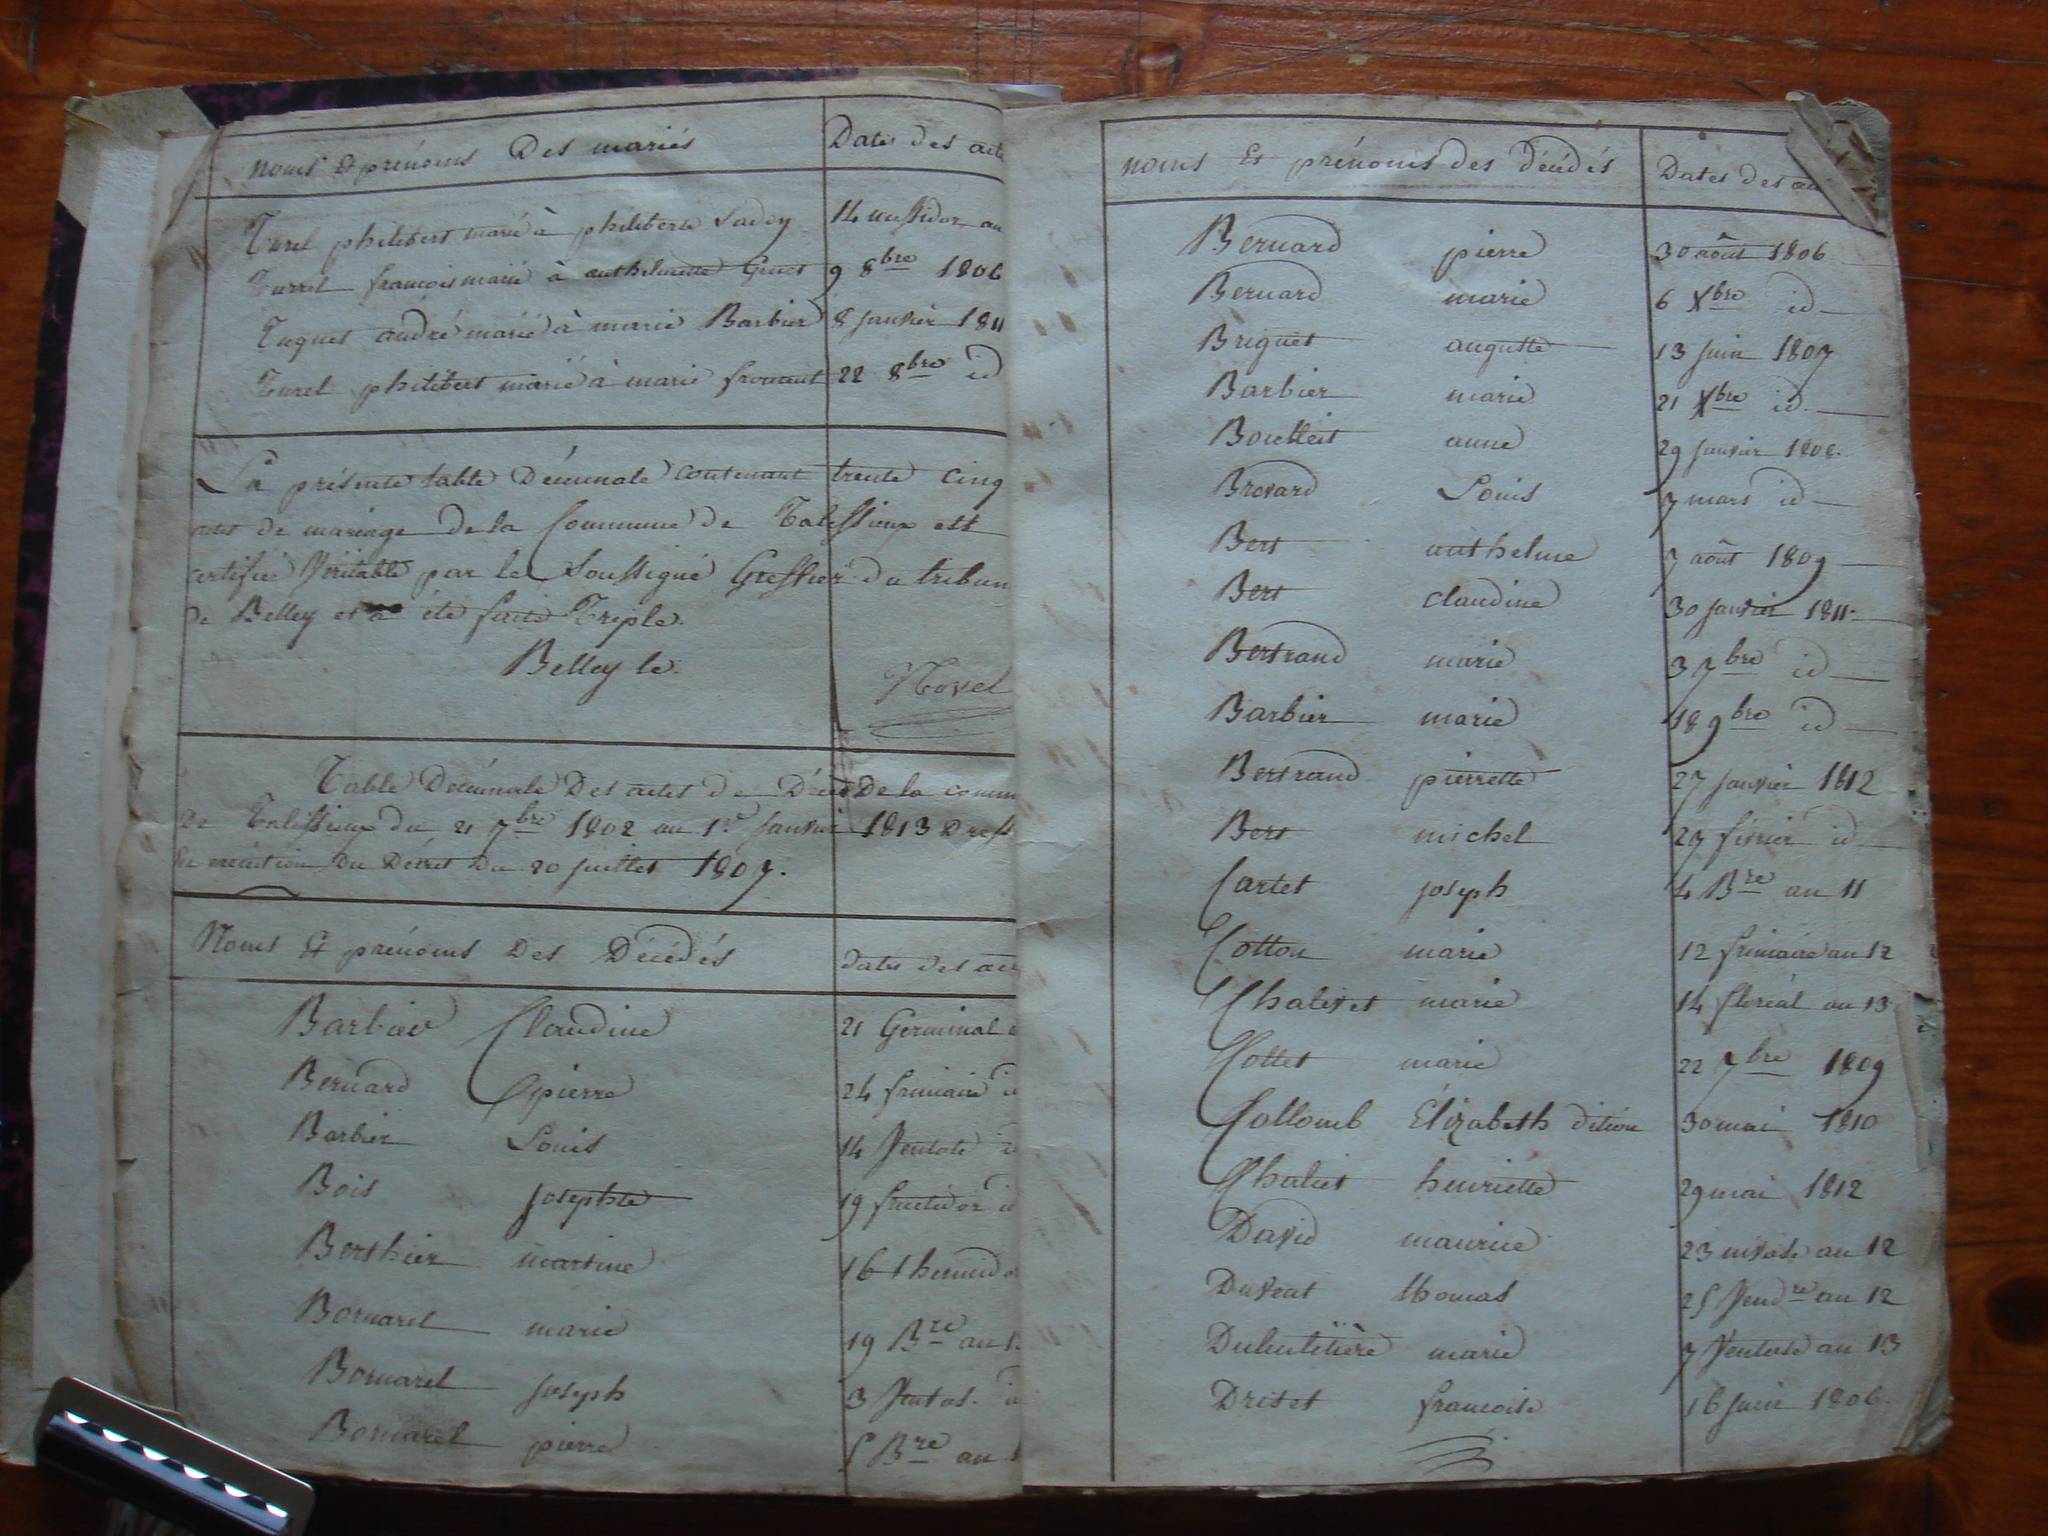 Noms Et prénoms Des mariés Dates des acte
Turel philibert marié à philiberte Sadey 14 messidor an
Turrel francois marié à anthelmette Genet 9 8bre 1806
Tuguet andré marié à marie Barbier 8 janvier 1811
Turel philibert marié à marie froment 22 8bre id
La présente table Décennale contenant trente cinq
actes de mariage de la Commune de Talissieux est
certifiée Véritable par le Soussigné Greffier du tribun
De Belley et a été faite Triple.
Belley le.
Novel
Table Décennale Des actes de Décès De la comm
De Talissieux du 21 7bre 1802 au 1er janvier 1813 Dress
En execution Du Décret Du 20 juillet 1807.
Noms Et prénoms Des Décédés dates des act
Barbier Claudine 21 Germinal
Bernard pierre 24 frimaire
Barbier Louis 14 Ventose
Bois Josephte 19 fructidor
Berthier martine 16 thermido
Bornarel marie 19 Bre an
Bornarel joseph 3 Ventos.
Bornarel pierre 5 Bre an
noms Et prénoms des décédés Dates des ac
Bernard pierre 30 août 1806
Bernard marie 6 Xbre id
Briguet auguste 13 juin 1807
Barbier marie 21 Xbre id
anne 29 janvier 1808
Brovard Louis 7 mars id
Bert anthelme 7 août 1809
Bert claudine 30 janvier 1811
Bertrand marie 3 7bre id
Barbier marie 18 9bre id
Bertrand pierrette 27 janvier 1812
Bert michel 27 février id
Cartet joseph 4 Bre an 11
Cotton marie 12 frimaire an 12
Chalivet marie 14 floréal an 13
Collet marie 22 7bre 1809
Collomb Élizabeth 30 mai 1810
Chaliet henriette 29 mai 1812
David maurice 23 nivose an 12
thomas 25 Vendre an 12
marie 7 Ventose an 13
Drivet francoise 16 juin 1806.